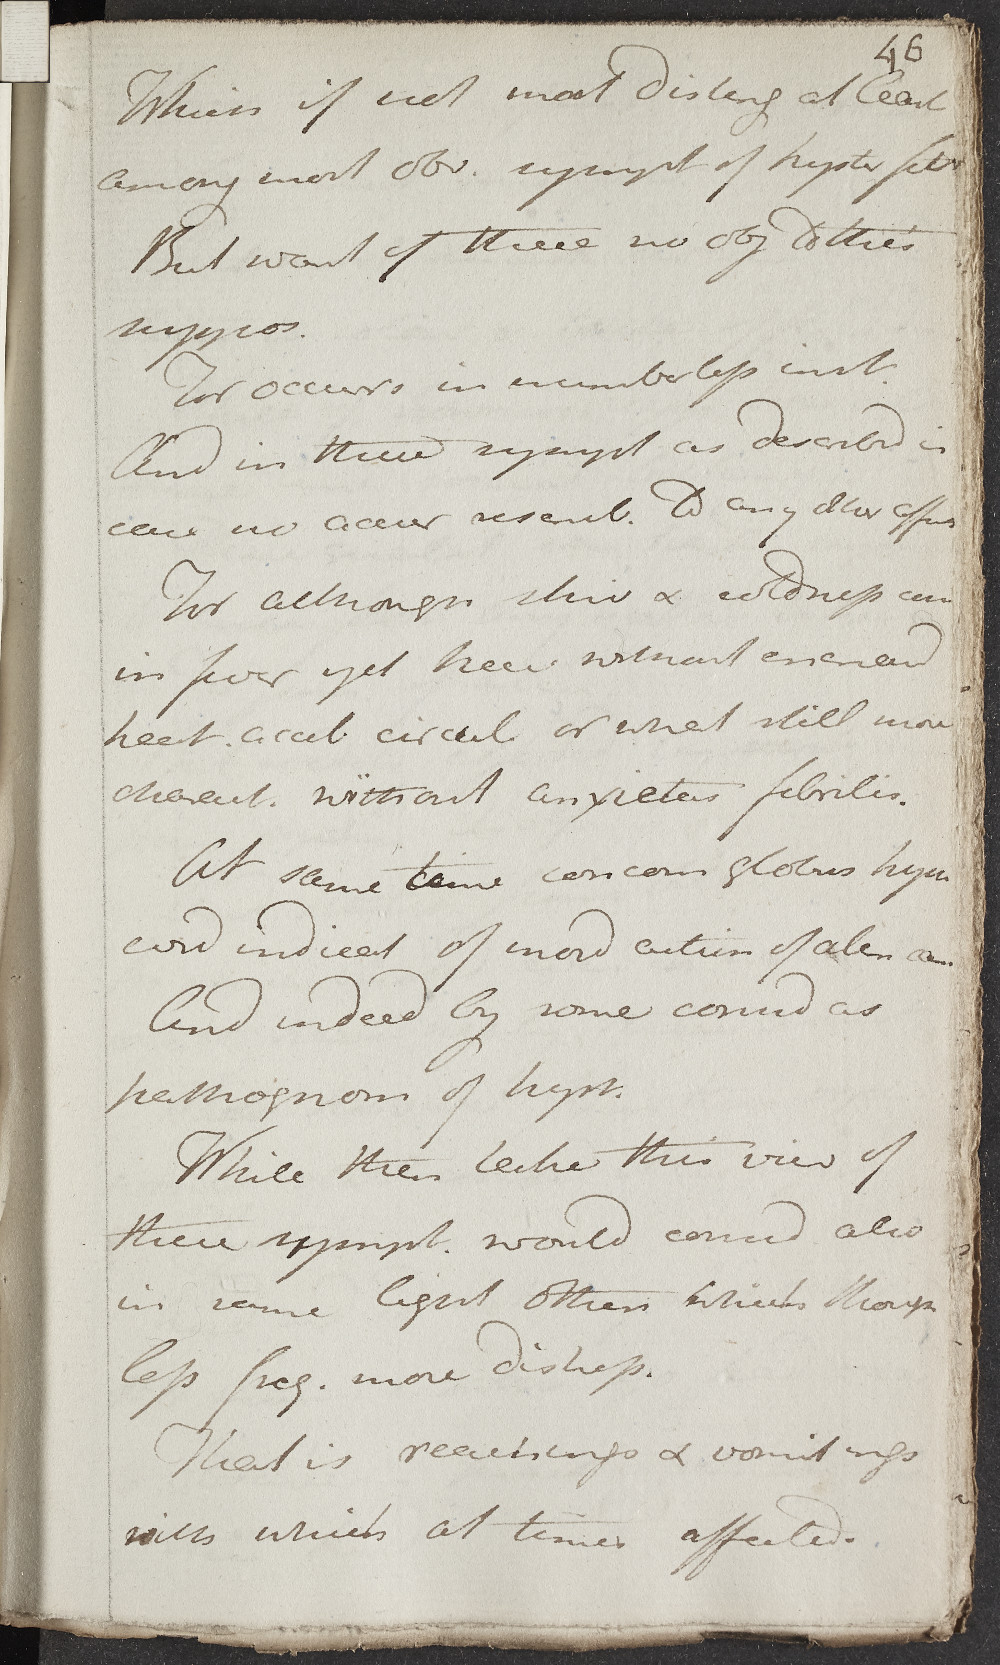 46
Which if not most disting at least
among most obv. sympt of hyster
But want of these no obj to this
suppos.
For occurs in numberless inst.
And in these sympt as described in
case no accur resemb. to any other
For although shiv & coldness
in fever yet here without
heat. accel. circul. or what still more
charact. without anxietas febrilis.
At same time concom globus
indicat of action of
And indeed by some consid as
pathognom of hyst.
While then take this view of
these sympt. would consid also
in same light others which though
less freq. more distress.
That is reachings & vomitings
with which at times affected.